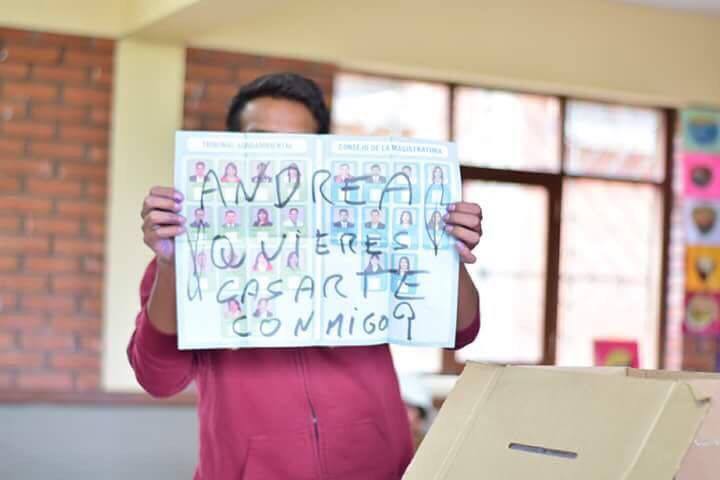 TRIBUNAL AGROAMBIENTAL
CONSEJO DE LA MAGISTRATURA
ANDREA
¿QUIERES
CASARTE
CONMIGO?